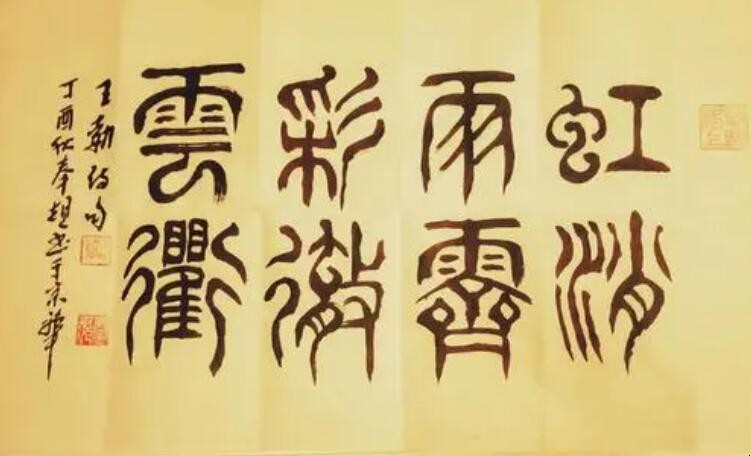 虹消
雨霽
彩徹
雲衢
王勃诗句
丁酉仲春书于京華